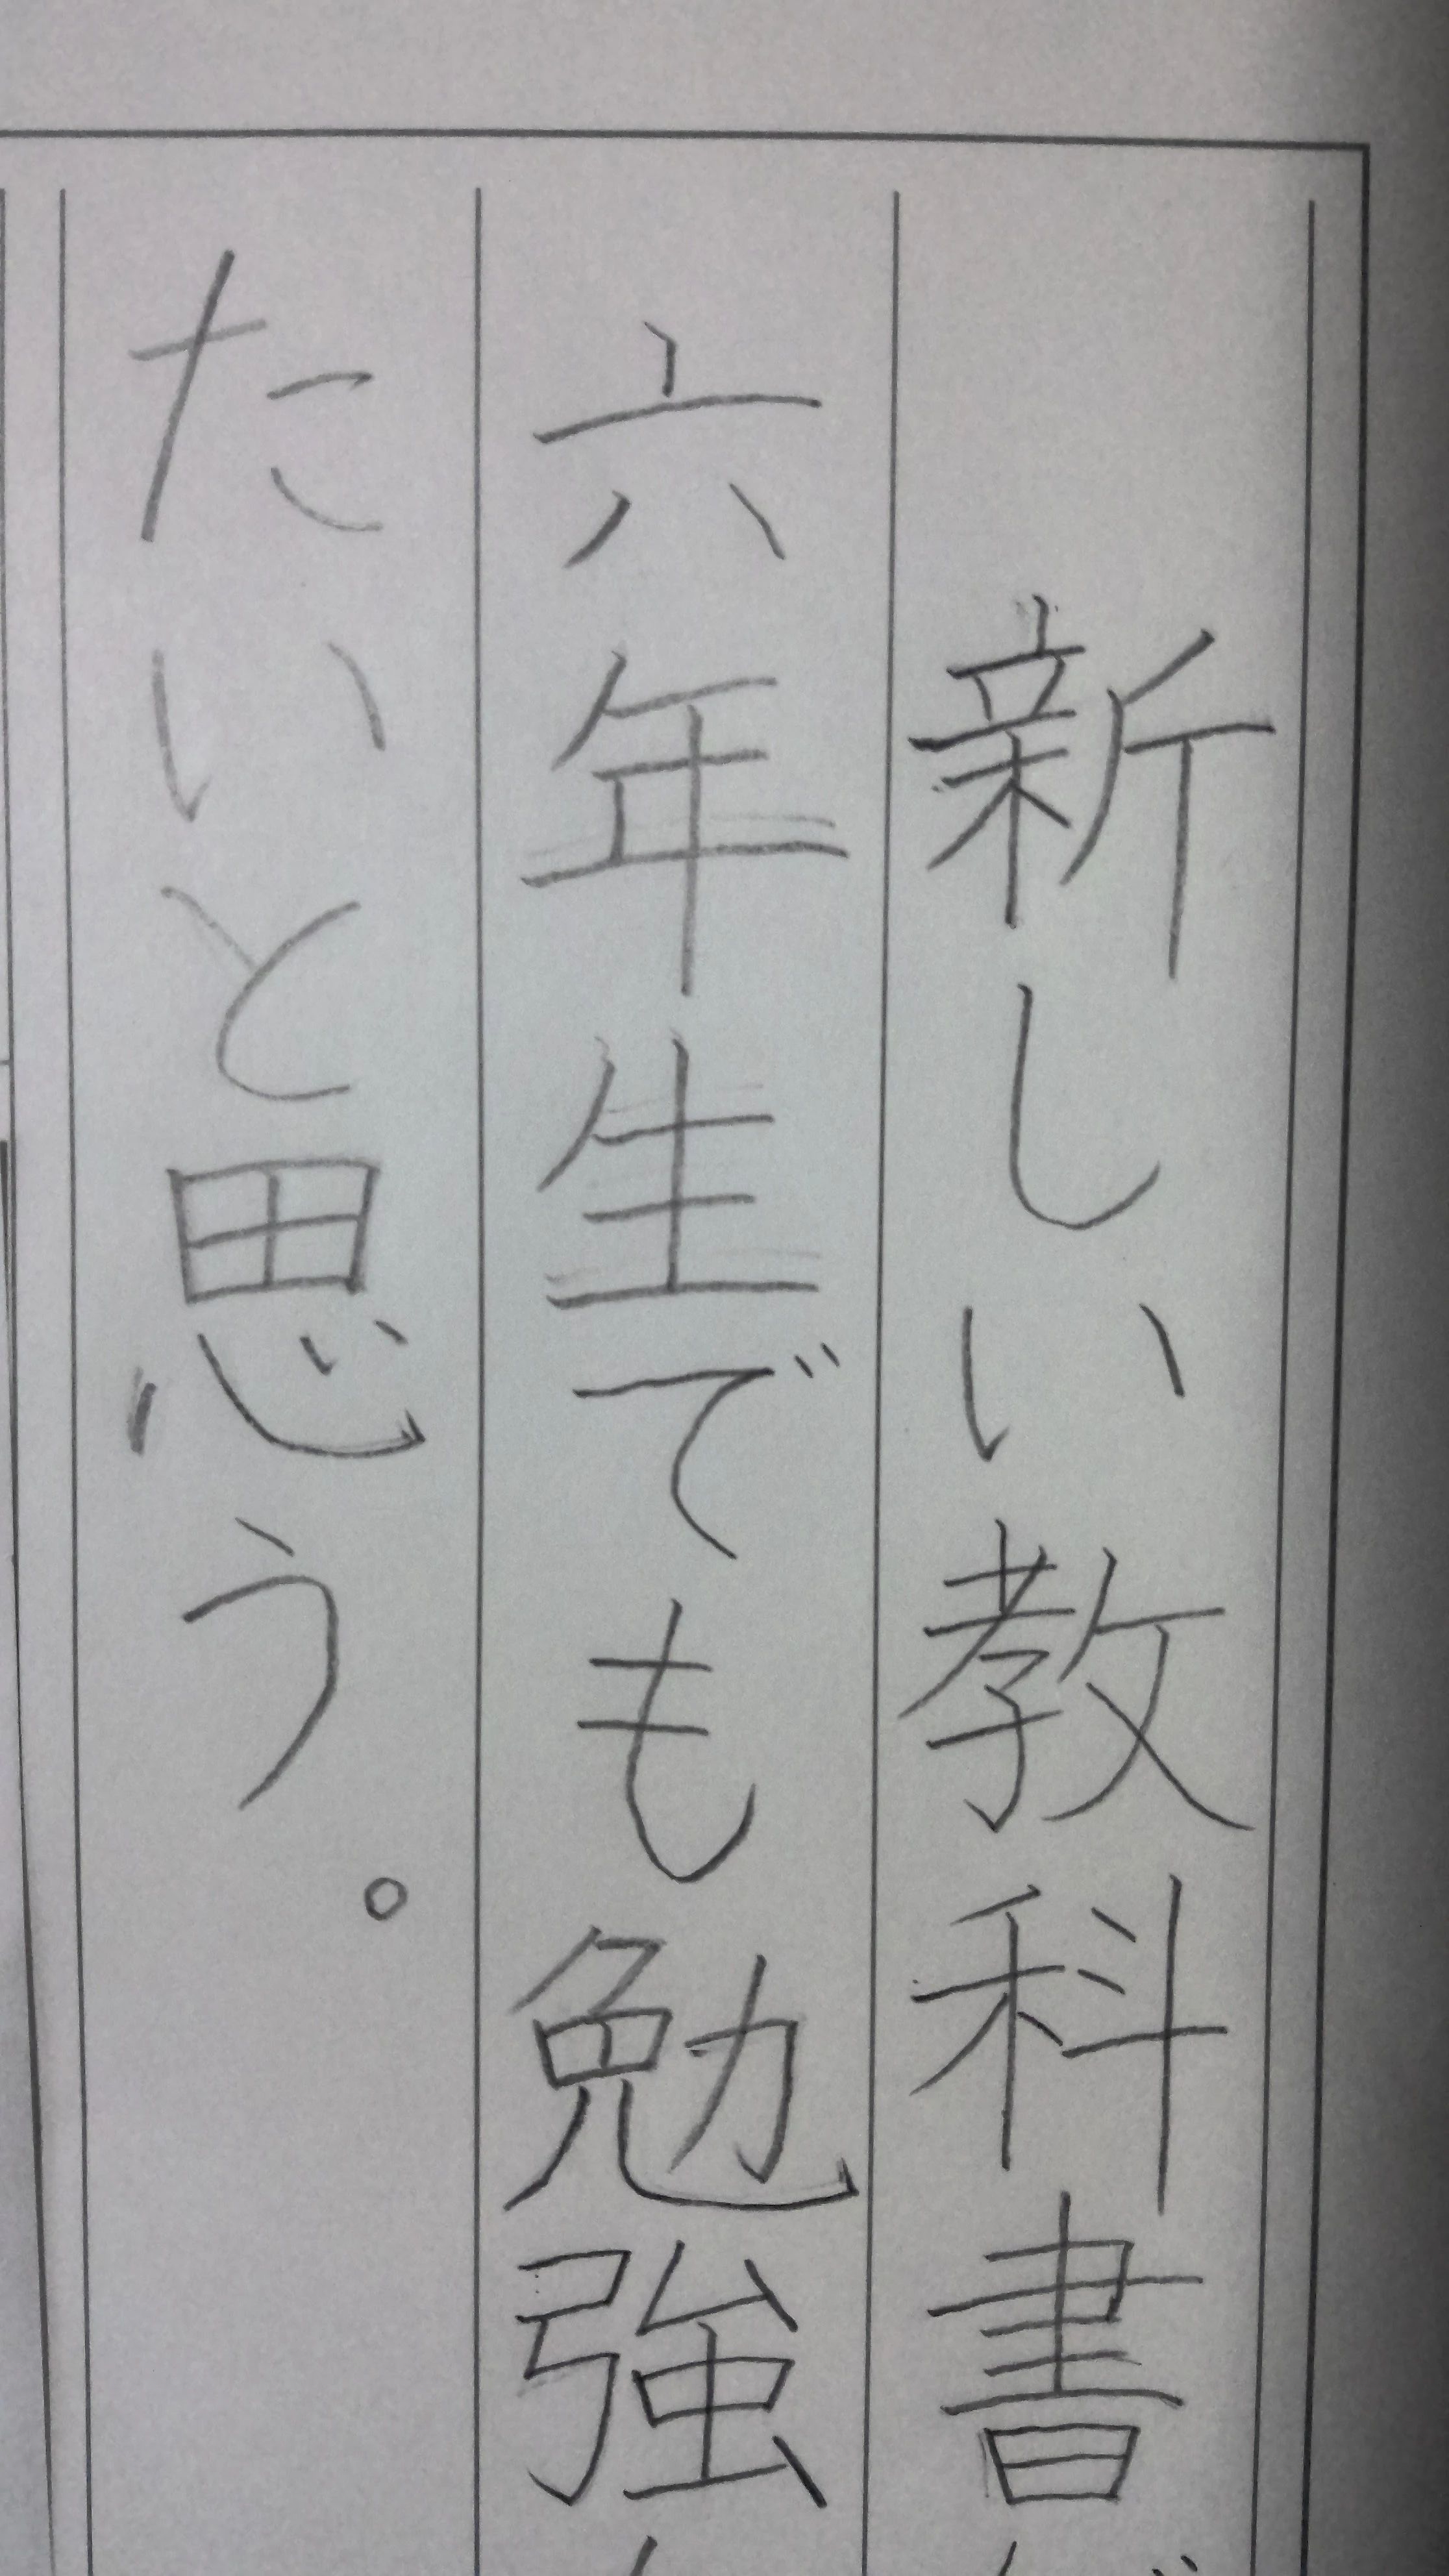 新しい教科書
六年生でも勉強
たいと思う。